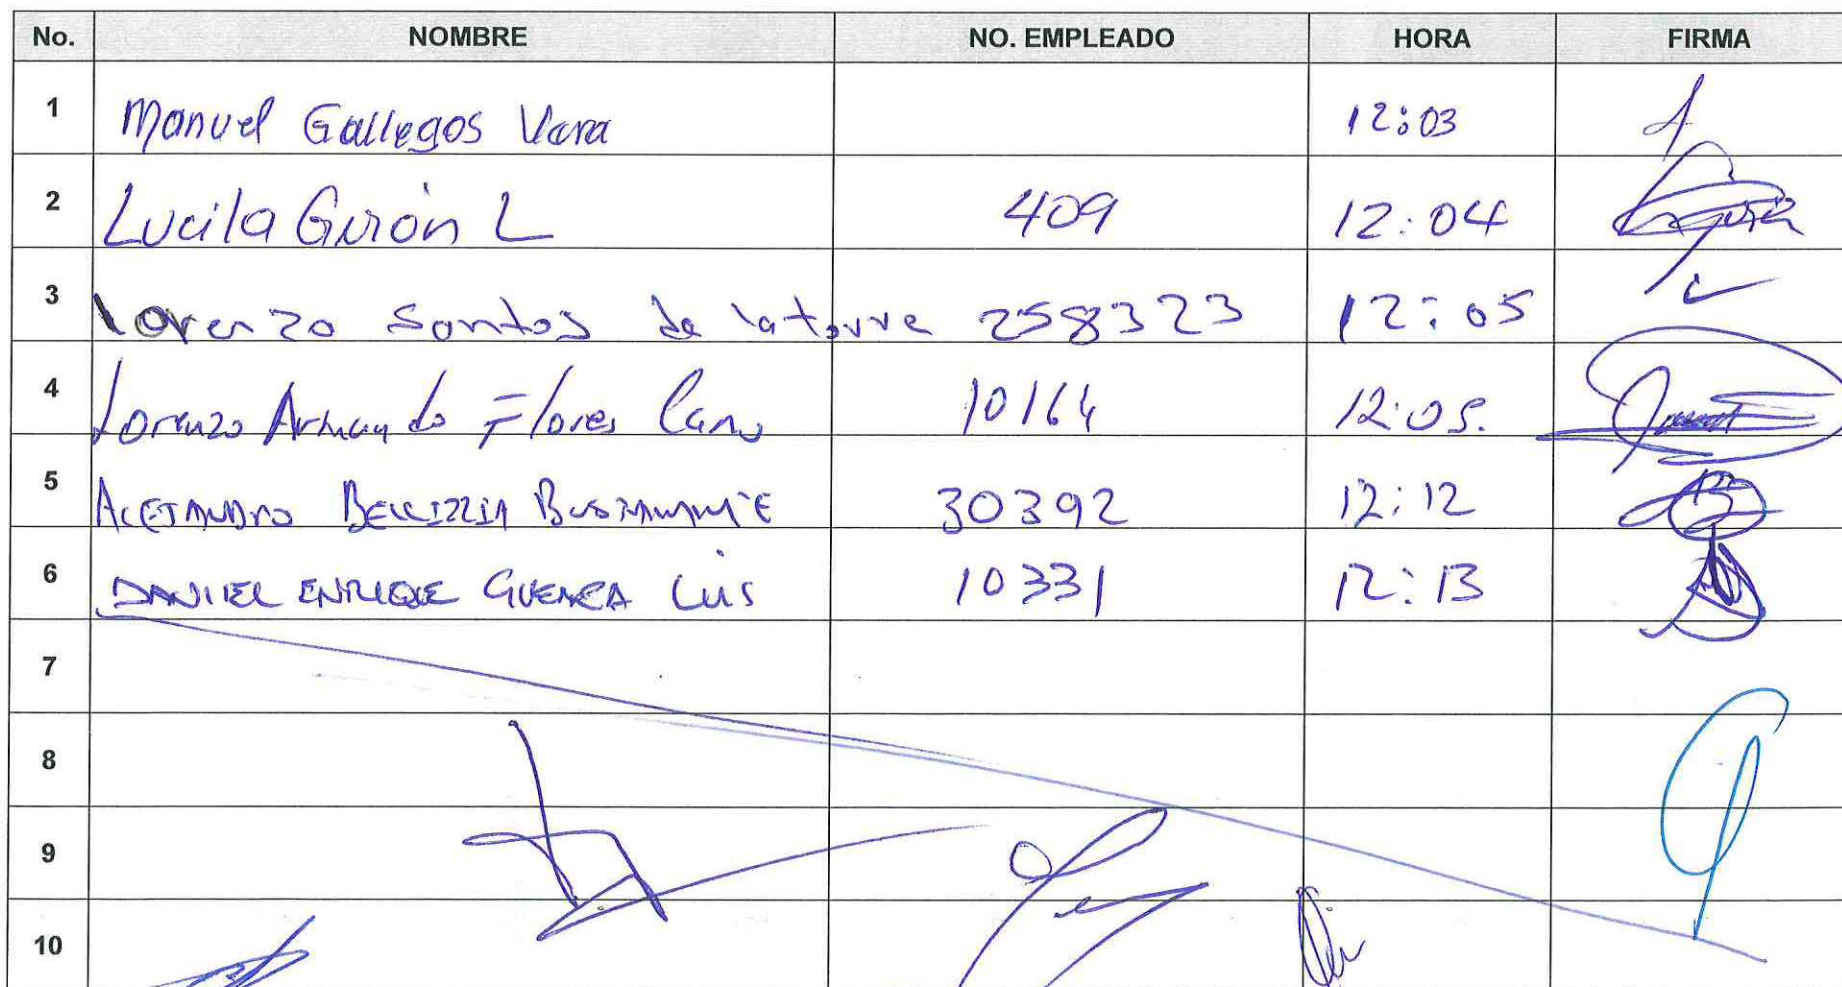 No. NOMBRE NO. EMPLEADO HORA FIRMA
1 Manuel Gallegos Vara 12:03
2 Lucila Girón L 409 12:04
3 Lorenzo Santos de la torre 258323 12:05
4 Lorenzo Armando Flores Cano 10164 12:05.
5 ALEJANDRO BELLIZZIA BUSTAMANTE 30392 12:12
6 DANIEL ENRIQUE GUERRA LUIS 10331 12:13
7
8
9
10